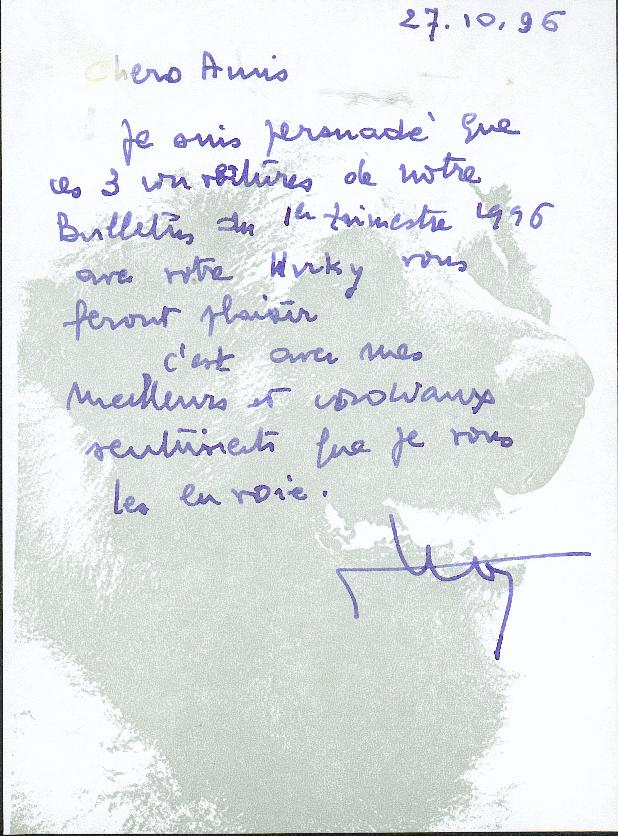 27.10.96
Chers Amis
Je suis persuadé que
ces 3 couvertures de notre
Bulletin du 1er trimestre 1996
avec votre Hurky vous
feront plaisir
c'est avec mes
meilleurs et cordiaux
sentiments que je vous
les envoie.